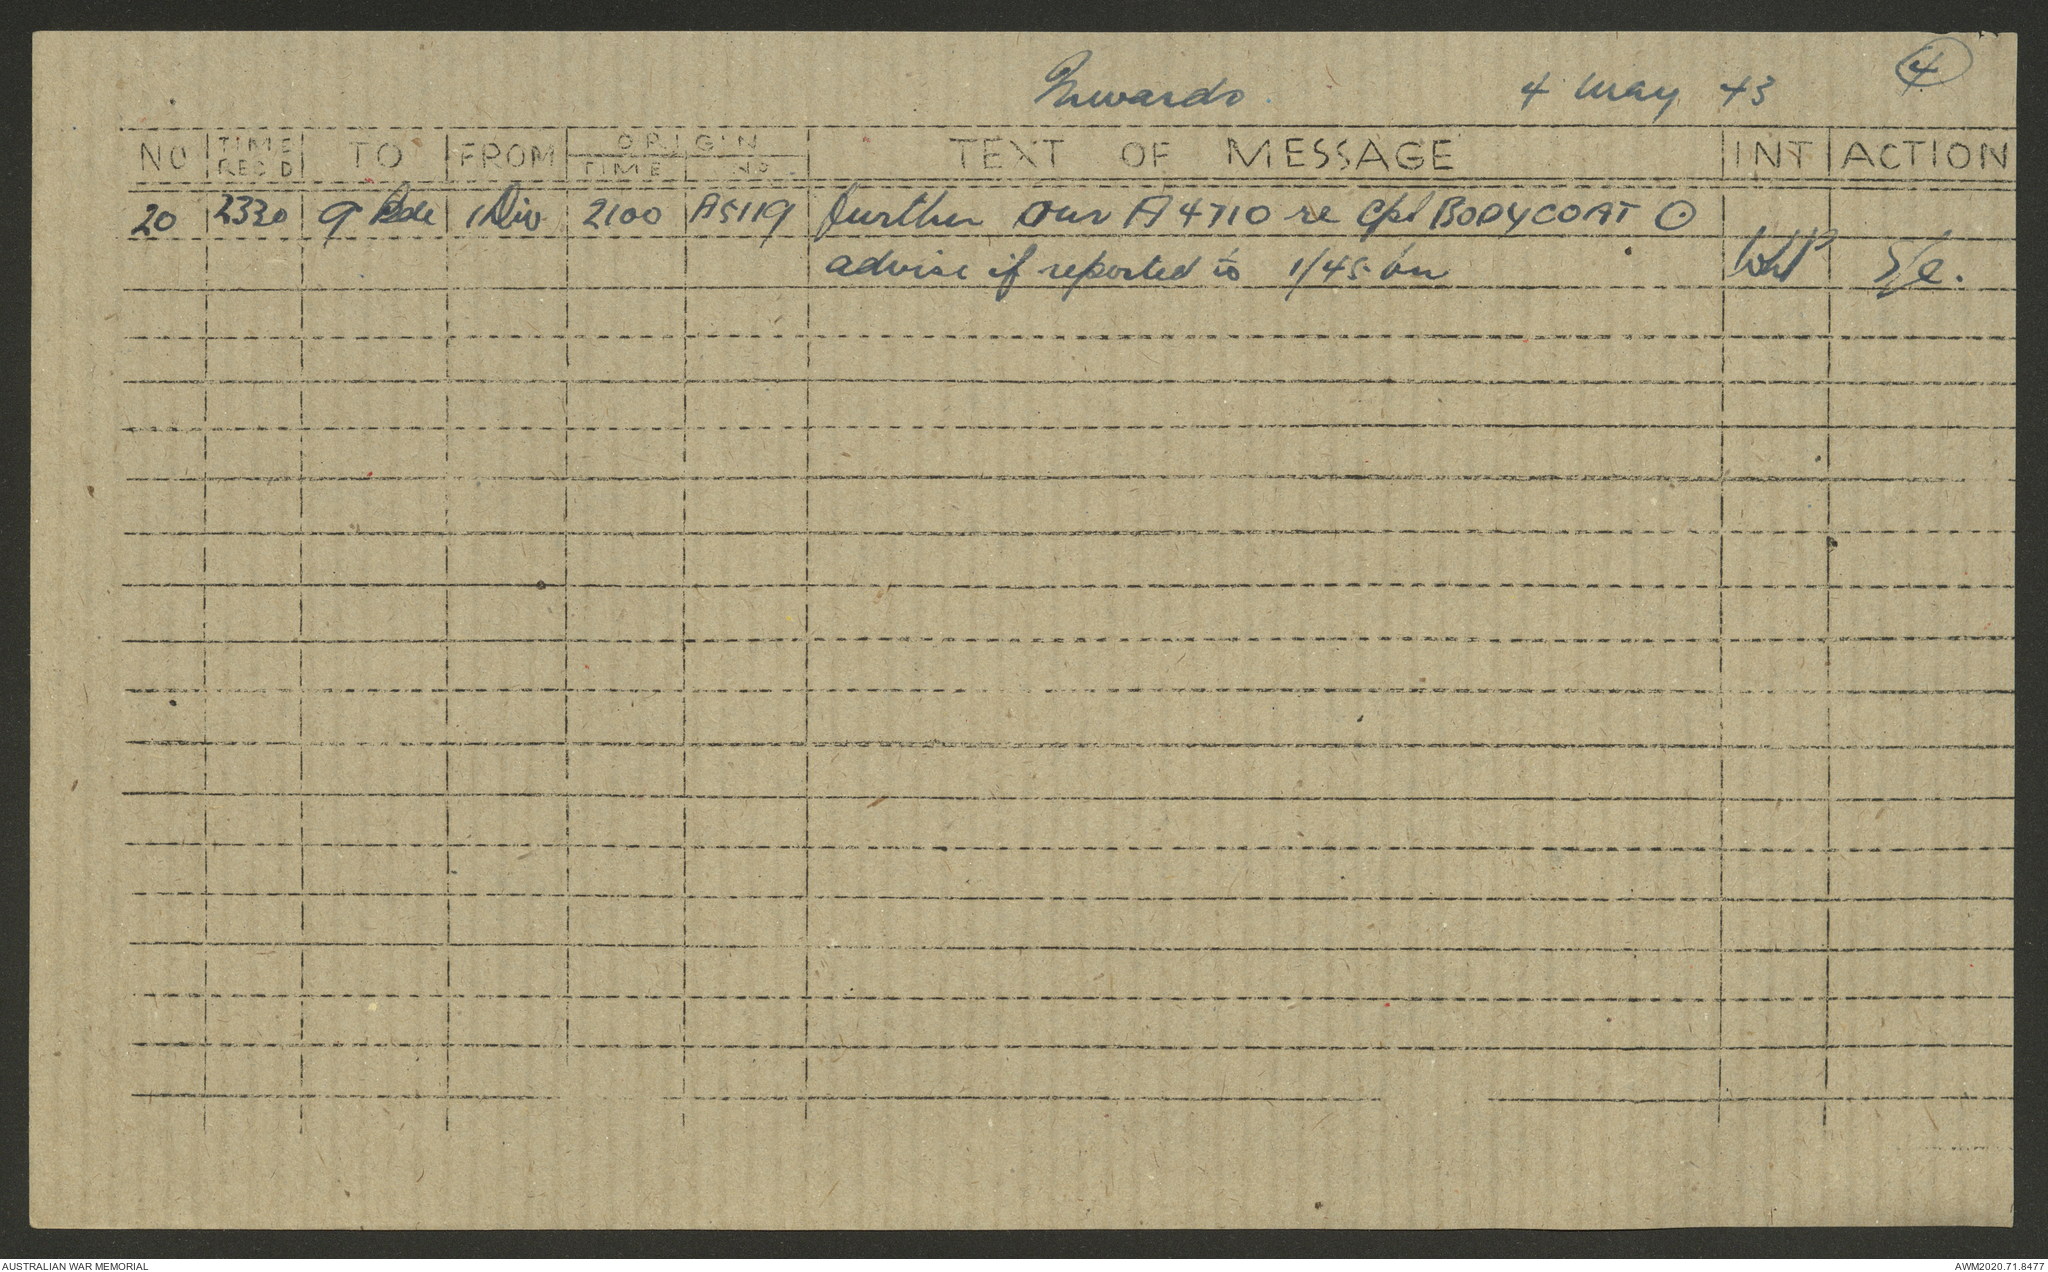 Inwards. 4 May 43 4
NO TIME RECD TO FROM ORIGIN TIME NO TEXT OF MESSAGE INT ACTION
20 2330 9 Bde 1 Div 2100 A5119 Further our A4710 re Cpl BODYCOAT ⊙
advise if reported to 1/45 bn
AUSTRALIAN WAR MEMORIAL AWM2020.71.8477